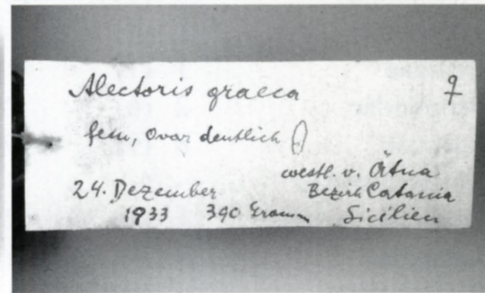 Alectoris graeca ♀
fem, Ovar deutlich
westl. v. Ätna
24. Dezember Bezirk Catania
1933 390 Gramm Sicilien